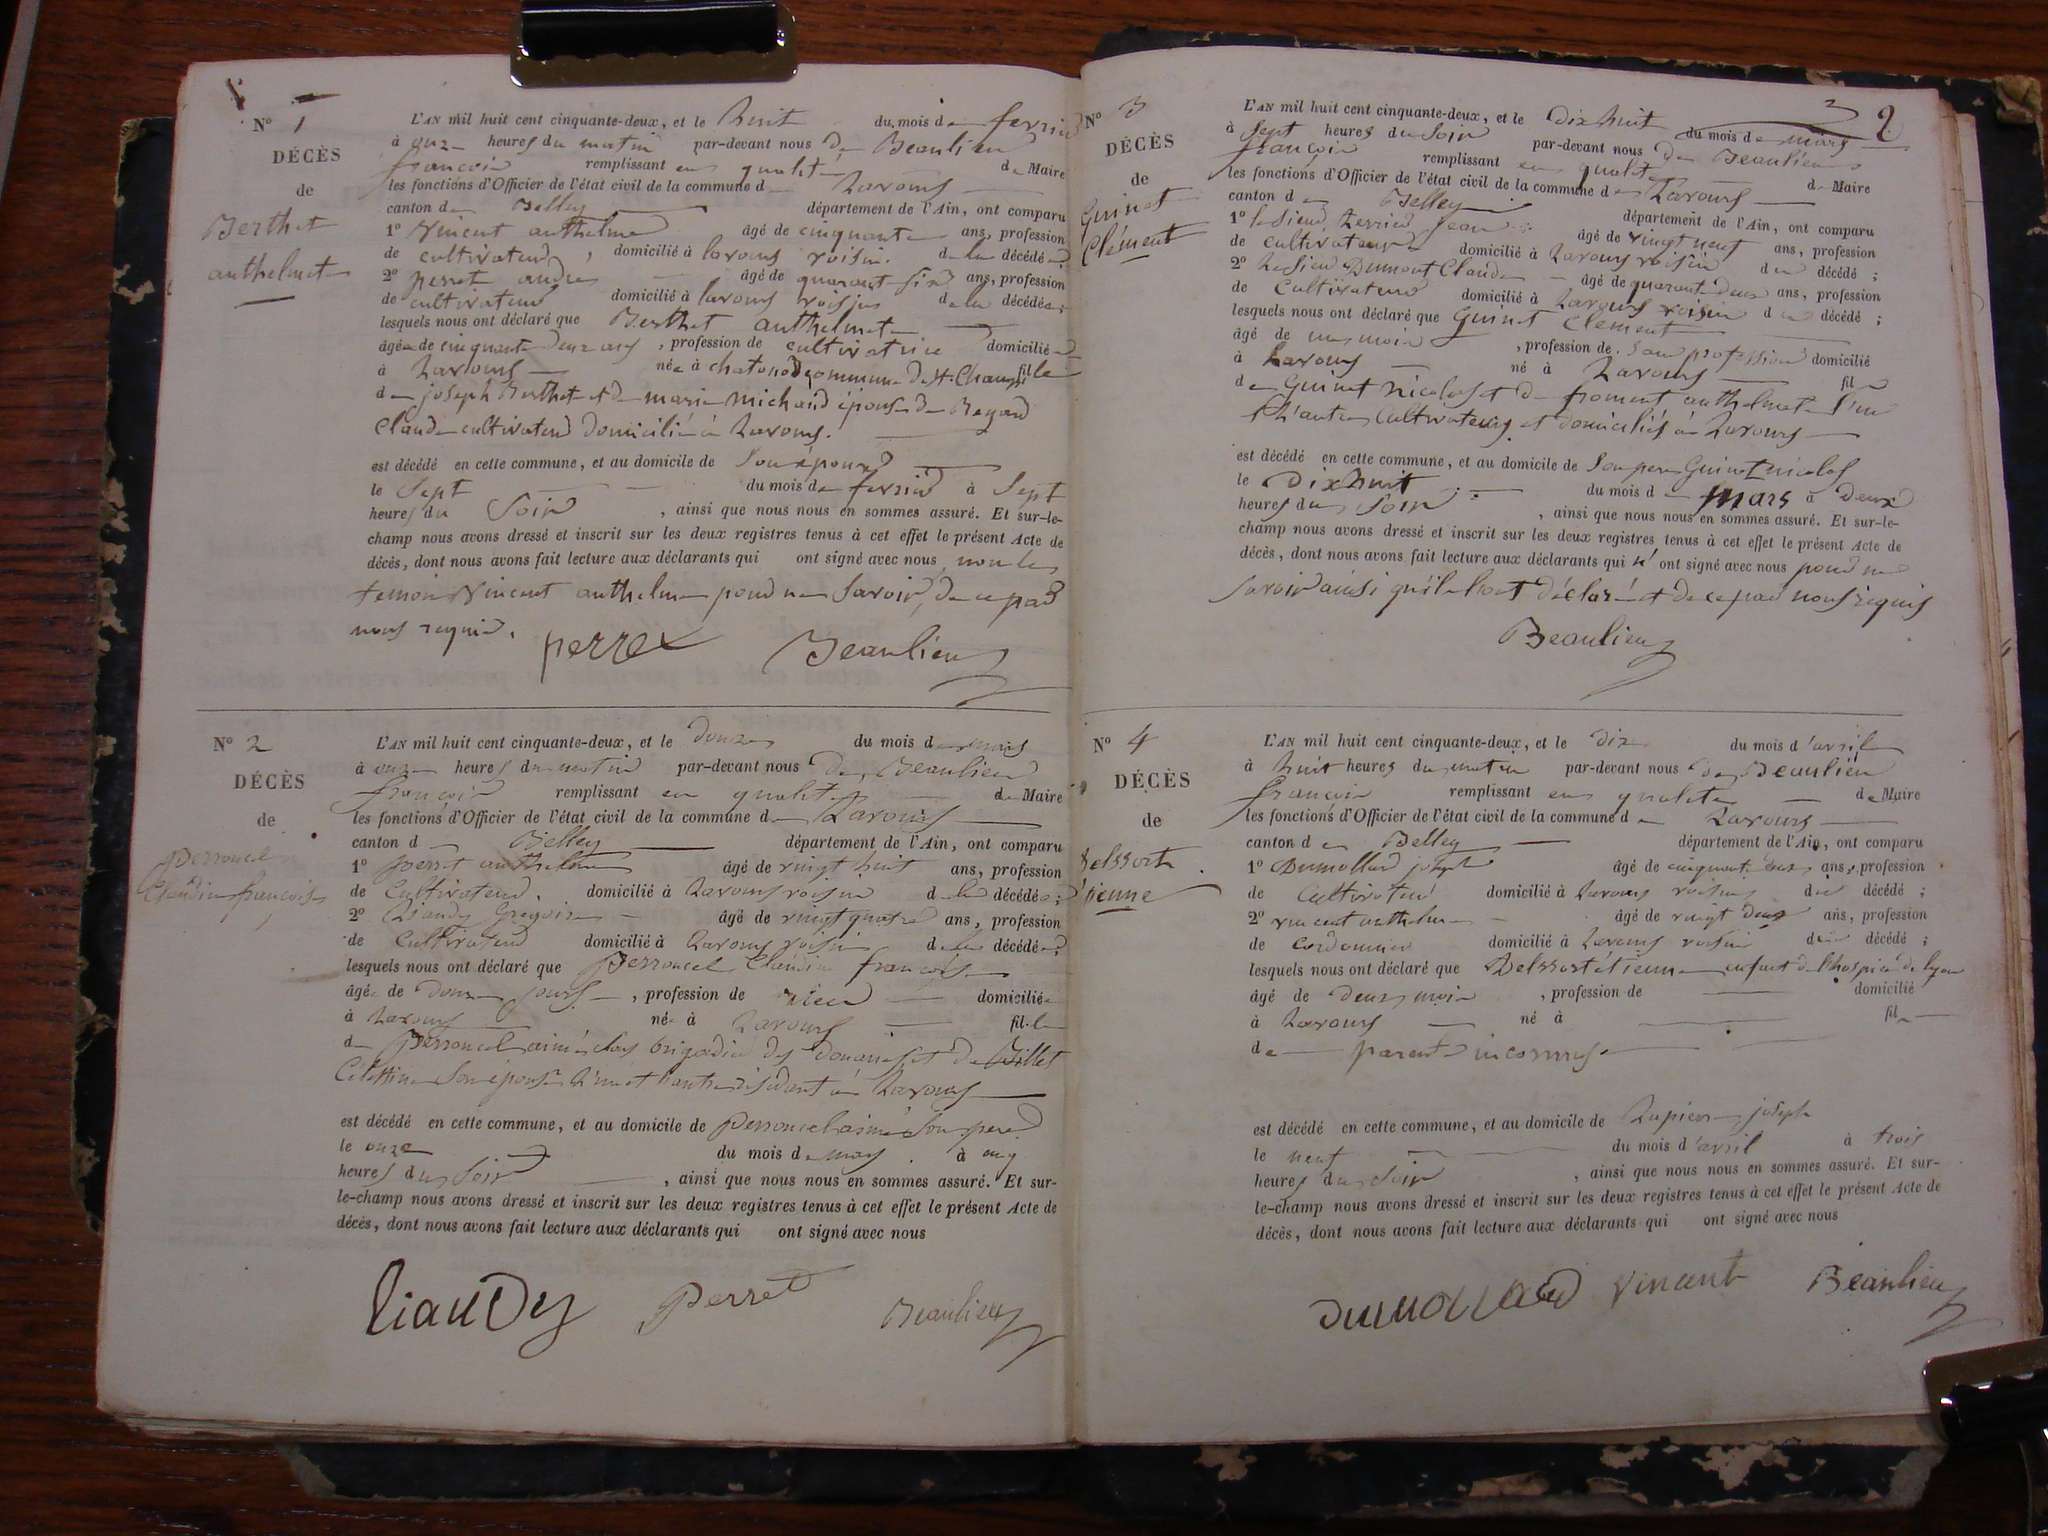 N° 1
DÉCÈS
de
Berthet
anthelmette
L'AN mil huit cent cinquante-deux, et le huit du mois de fevrier
à onze heures du matin par-devant nous De Beaulieu
françois remplissant en qualité de Maire
les fonctions d'Officier de l'état civil de la commune de Lavours
canton de Belley département de l'Ain, ont comparu
1° Vincent anthelme âgé de cinquante ans, profession
de cultivateur, domicilié à lavours voisin de la décédée
2° perret andre âgé de quarante six ans, profession
de cultivateur domicilié à lavours voisin de la décédée;
lesquels nous ont déclaré que Berthet anthelmette
âgée de cinquante deux ans, profession de cultivatrice domiciliée
à Lavours née à chatonod commune de St. Champ fille
de joseph Berthet et de marie michaud épouse de Reyard
Claude cultivateur domicilié à Lavours.
est décédé en cette commune, et au domicile de Son époux
le Sept du mois de fevrier à Sept
heures du Soir, ainsi que nous nous en sommes assuré. Et sur-le-
champ nous avons dressé et inscrit sur les deux registres tenus à cet effet le présent Acte de
décès, dont nous avons fait lecture aux déclarants qui ont signé avec nous, non le
temoin Vincent anthelme pour ne Savoir, de ce par
nous requis.
perret Beaulieu
N° 2
DÉCÈS
de
Perroncel
Claudine françoise
L'AN mil huit cent cinquante-deux, et le douze du mois de mars
à onze heures du matin par-devant nous De Beaulieu
françois remplissant en qualité de Maire
les fonctions d'Officier de l'état civil de la commune de Lavours
canton de Belley département de l'Ain, ont comparu
1° perret anthelme âgé de vingt huit ans, profession
de Cultivateur. domicilié à Lavours voisin de la décédée;
2° Liaudy Gregoire âgé de vingt quatre ans, profession
de Cultivateur domicilié à Lavours voisin de la décédée;
lesquels nous ont déclaré que Perroncel Claudine françoise
âgée de douze jours, profession de domiciliée
à Lavours née à Lavours fille
de Perroncel aimé brigadier des douanes et de Billet
Son épouse L'un et l'autre résidant à Lavours
est décédé en cette commune, et au domicile de Perroncel aimé Son pere
le onze du mois de mars à cinq
heures du Soir, ainsi que nous nous en sommes assuré. Et sur-
le-champ nous avons dressé et inscrit sur les deux registres tenus à cet effet le présent Acte de
décès, dont nous avons fait lecture aux déclarants qui ont signé avec nous
liaudy Perret Beaulieu
2
N° 3
DÉCÈS
de
Guinet
Clément
L'AN mil huit cent cinquante-deux, et le Dix huit du mois de mars
à Sept heures du Soir par-devant nous De Beaulieu
françois remplissant en qualité de Maire
les fonctions d'Officier de l'état civil de la commune de Lavours
canton de Belley département de l'Ain, ont comparu
1° le Sieur Jean âgé de vingt neuf ans, profession
de cultivateur domicilié à Lavours voisin du décédé;
2° Le Sieur Dumont Claude âgé de quarante deux ans, profession
de Cultivateur domicilié à Lavours voisin du décédé;
lesquels nous ont déclaré que Guinet Clement
âgé de un moi, profession de Sans profession domicilié
à Lavours né à Lavours fils
de Guinet Nicolas et de froment anthelmette l'un
et L'autre Cultivateurs et domiciliés à Lavours
est décédé en cette commune, et au domicile de Son pere Guinet nicolas
le Dix huit du mois de mars à Deux
heures du Soir, ainsi que nous nous en sommes assuré. Et sur-le-
champ nous avons dressé et inscrit sur les deux registres tenus à cet effet le présent Acte de
décès, dont nous avons fait lecture aux déclarants qui n'ont signé avec nous pour ne
Savoir ainsi qu'il l'ont déclaré et de ce par nous requis
Beaulieu
N° 4
DÉCÈS
de
Belssort
étienne
L'AN mil huit cent cinquante-deux, et le dix du mois d'avril
à huit heures du matin par-devant nous De Beaulieu
françois remplissant en qualité de Maire
les fonctions d'Officier de l'état civil de la commune de Lavours
canton de Belley département de l'Ain, ont comparu
1° Dumollard joseph âgé de cinquante deux ans, profession
de Cultivateur domicilié à Lavours voisin du décédé;
2° vincent anthelme âgé de vingt deux ans, profession
de cordonnier domicilié à Lavours voisin du décédé;
lesquels nous ont déclaré que Belssort étienne enfant de l'hospice de lyon
âgé de deux moi, profession de domicilié
à Lavours né à fils
de parents inconnus
est décédé en cette commune, et au domicile de Lapierre joseph
le neuf du mois d'avril à trois
heures du Soir, ainsi que nous nous en sommes assuré. Et sur-
le-champ nous avons dressé et inscrit sur les deux registres tenus à cet effet le présent Acte de
décès, dont nous avons fait lecture aux déclarants qui ont signé avec nous
Dumollard Vincent Beaulieu